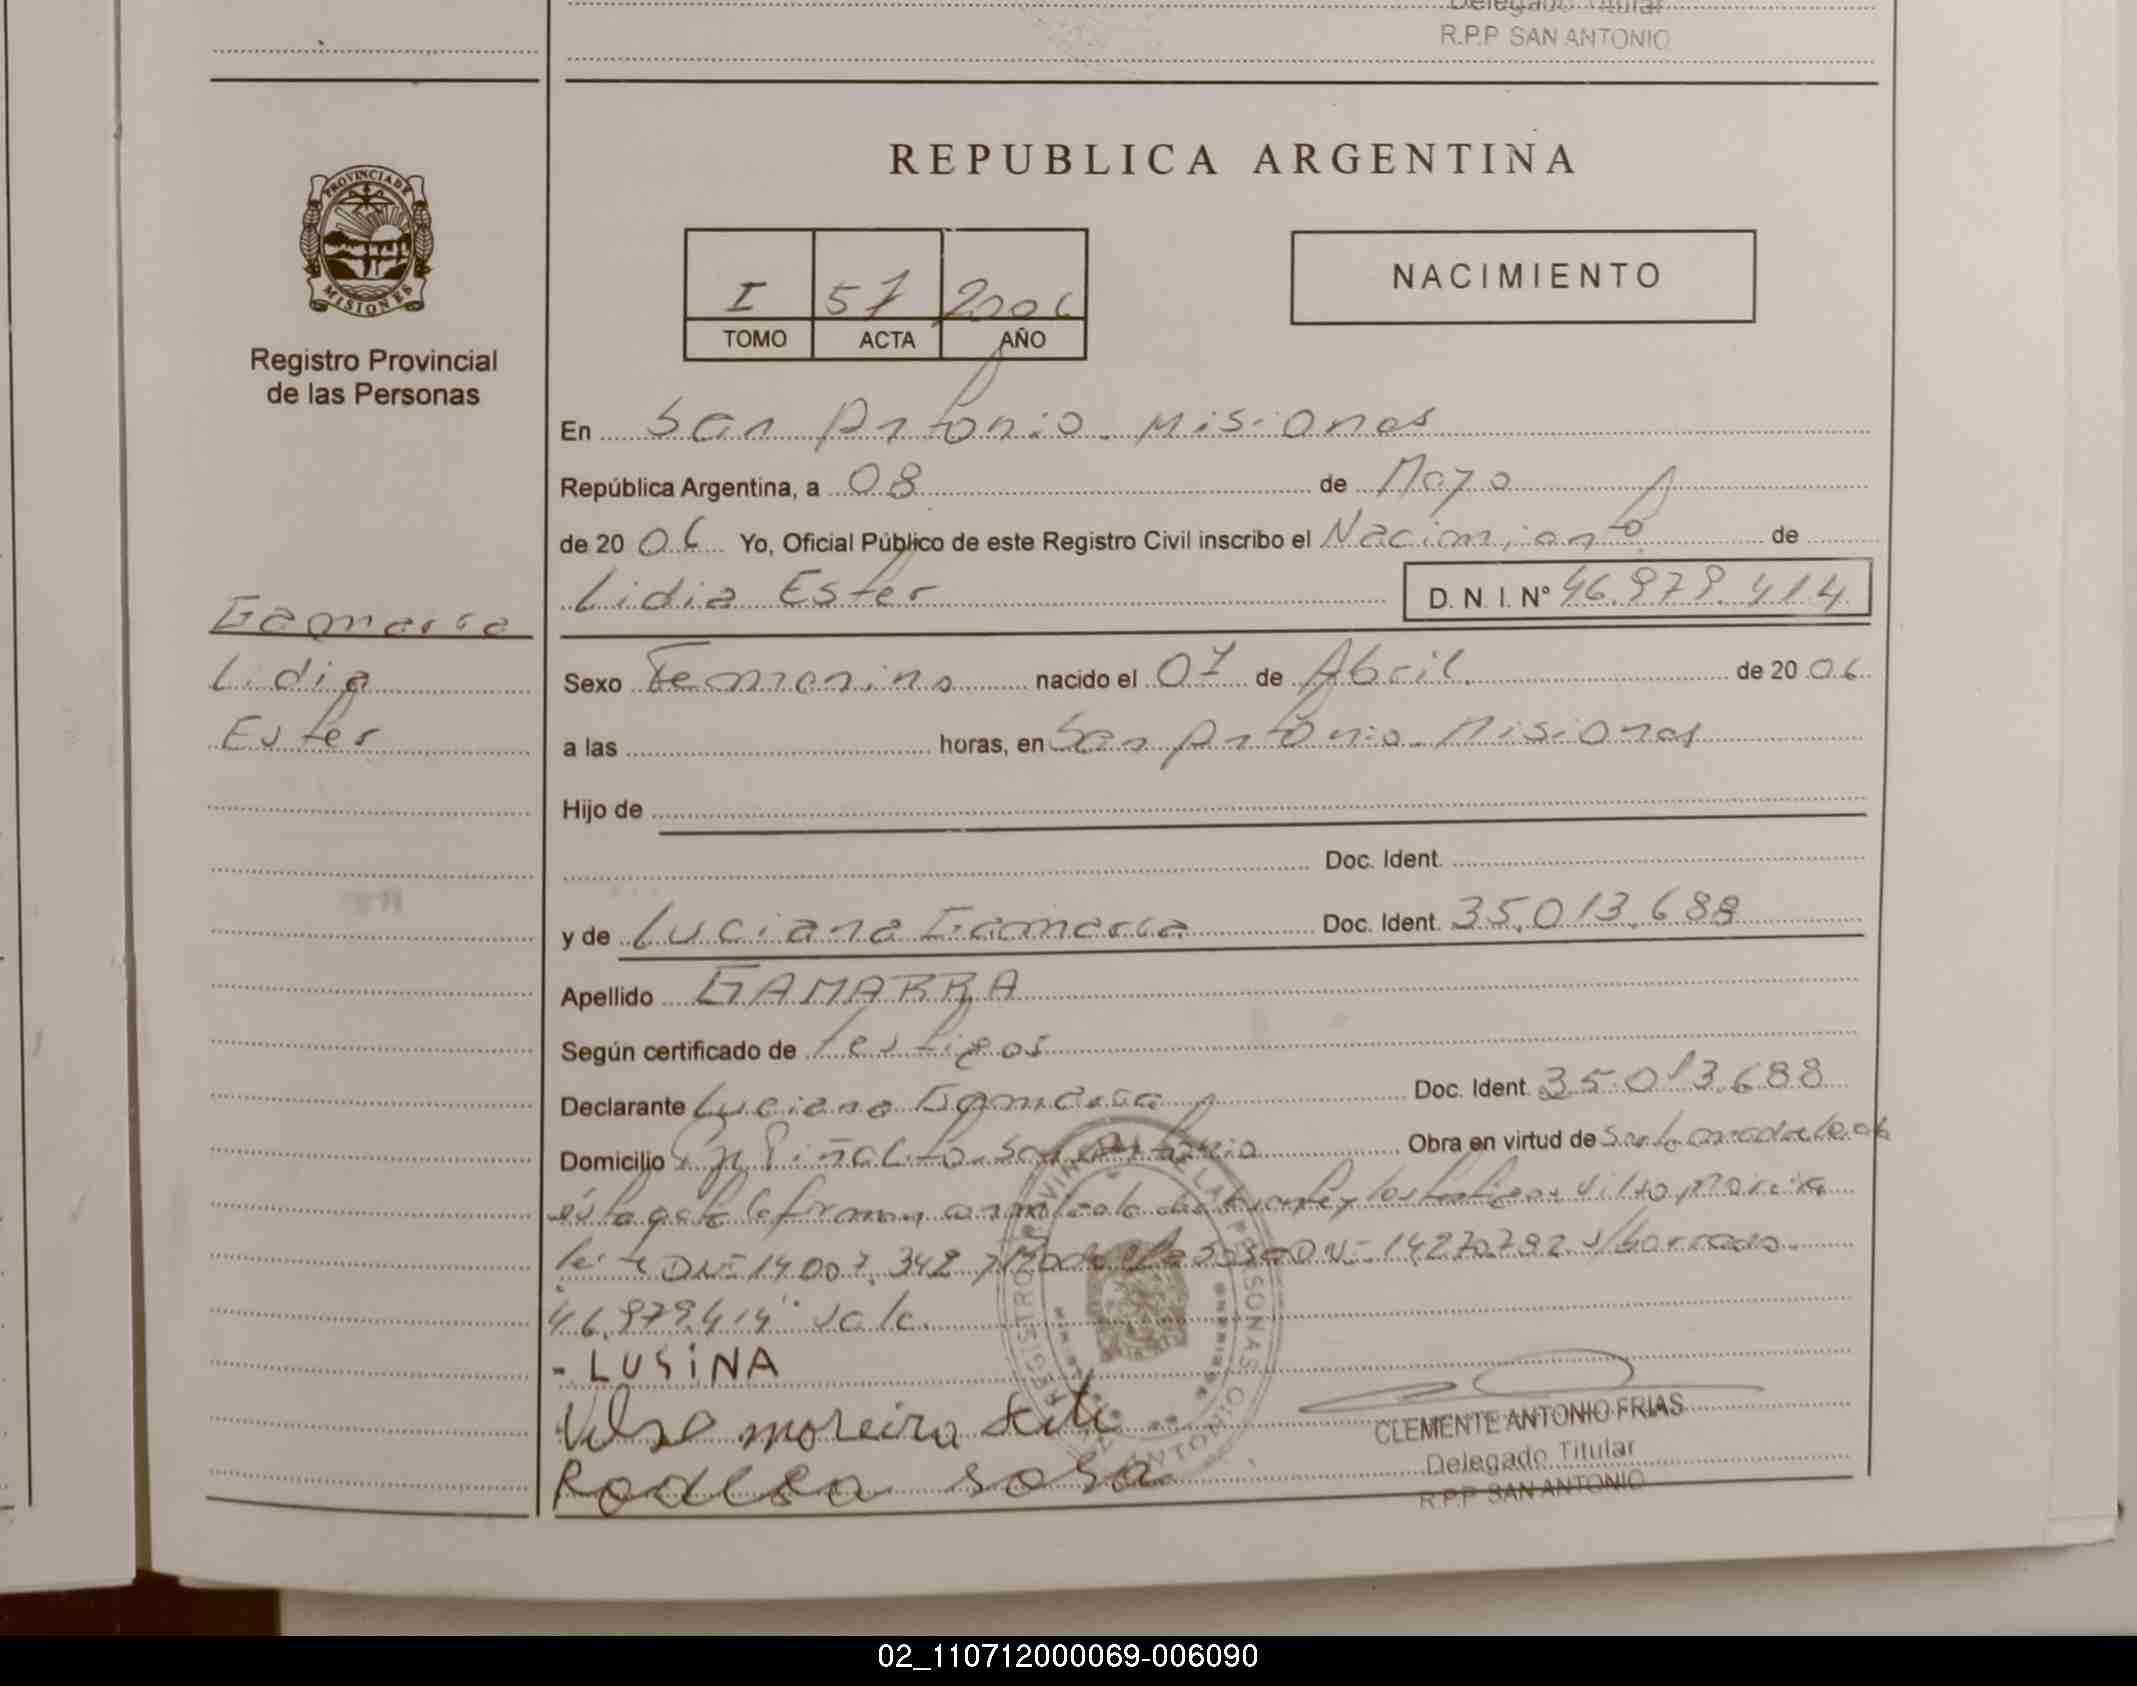 Delegado Titular
R.P.P SAN ANTONIO
REPUBLICA ARGENTINA
PROVINCIA DE
MISIONES
Registro Provincial
de las Personas
NACIMIENTO
I 57 2006
TOMO ACTA AÑO
En San Antonio. Misiones
República Argentina, a 08 de Mayo
de 20 06 Yo, Oficial Público de este Registro Civil inscribo el Nacimiento de
Lidia Ester D. N. I. N° 46.979.414
Gamarra
Lidia
Ester
Sexo Femenino nacido el 07 de Abril de 20 06
a las horas, en San Antonio. Misiones
Hijo de
Doc. Ident.
y de Luciana Gamarra Doc. Ident. 35.013.688
Apellido GAMARRA
Según certificado de testigos
Declarante Luciana Gamarra Doc. Ident. 35.013.688
Domicilio Piñalito San Antonio Obra en virtud de
la firman y los testigos Vilso Moreira
14.007.342 Sosa 14.270.792 s/borrado
46.979.414 vale.
- LUSiNA
Vilso moreira
Rodesa sosa
CLEMENTE ANTONIO FRIAS
Delegado Titular
R.P.P SAN ANTONIO
02_110712000069-006090